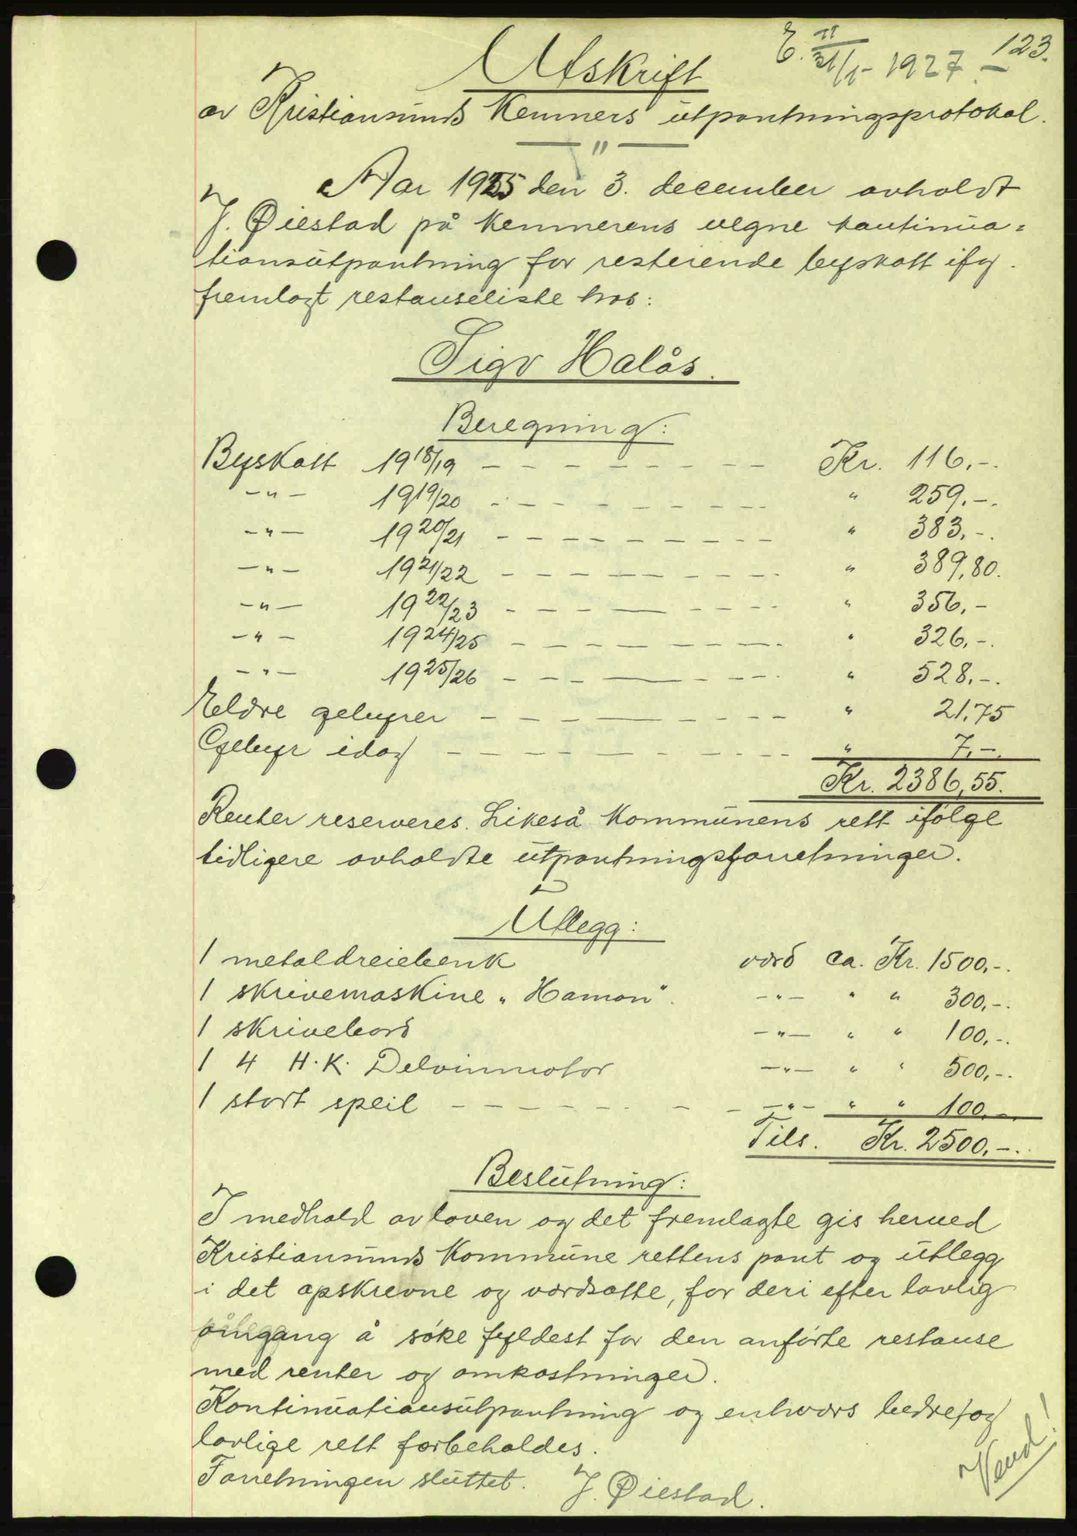 E. II 31/1 - 1927. - 123.
Utskrift
av Kristiansunds Kemners utpantningsprotokol.
— " —
Aar 1925 den 3. december avholdt
J. Øiestad på kemnerens vegne kontinua=
tionsutpantning for resterende byskatt iføl.
fremlagt restanseliste hos:
Sigv Halås.
Beregning:
Byskatt 1918/19 - - - - - - - - Kr. 116,-.
-"- 1919/20 - - - - - - - - " 259,-.
-"- 1920/21 - - - - - - - - " 383,-.
-"- 1921/22 - - - - - - - - " 389,80.
-"- 1922/23 - - - - - - - - " 356,-
-"- 1924/25 - - - - - - - - " 326,-.
-"- 1925/26 - - - - - - - - " 528,-.
Eldre gebyrer - - - - - - - - " 21,75
Gebyr idag - - - - - - - - " 7,-.
Kr. 2386,55.
Renter reserveres. Likeså kommunens rett ifølge
tidligere avholdte utpantningsforretninger.
Utlegg:
1 metaldreiebenk værd ca. Kr. 1500,-.
1 skrivemaskine „Hamon". -"- " " 300,-.
1 skrivebord -"- " " 100,-.
1 4 H.K. Delvinmotor -"- " " 500,-.
1 stort speil - - - - - - - -"- " " 100,-.
Tils. Kr. 2500,-.
Beslutning:
I medhold av loven og det fremlagte gis herved
Kristiansunds kommune rettens pant og utlegg
i det opskrevne og værdsatte, for deri efter lovlig
omgang å søke fyldest for den anførte restanse
med renter og omkostninger.
Kontinuationsutpantning og enhvers bedre og
lovlige rett forbeholdes.
Forretningen sluttet. J. Øiestad.
Vend!